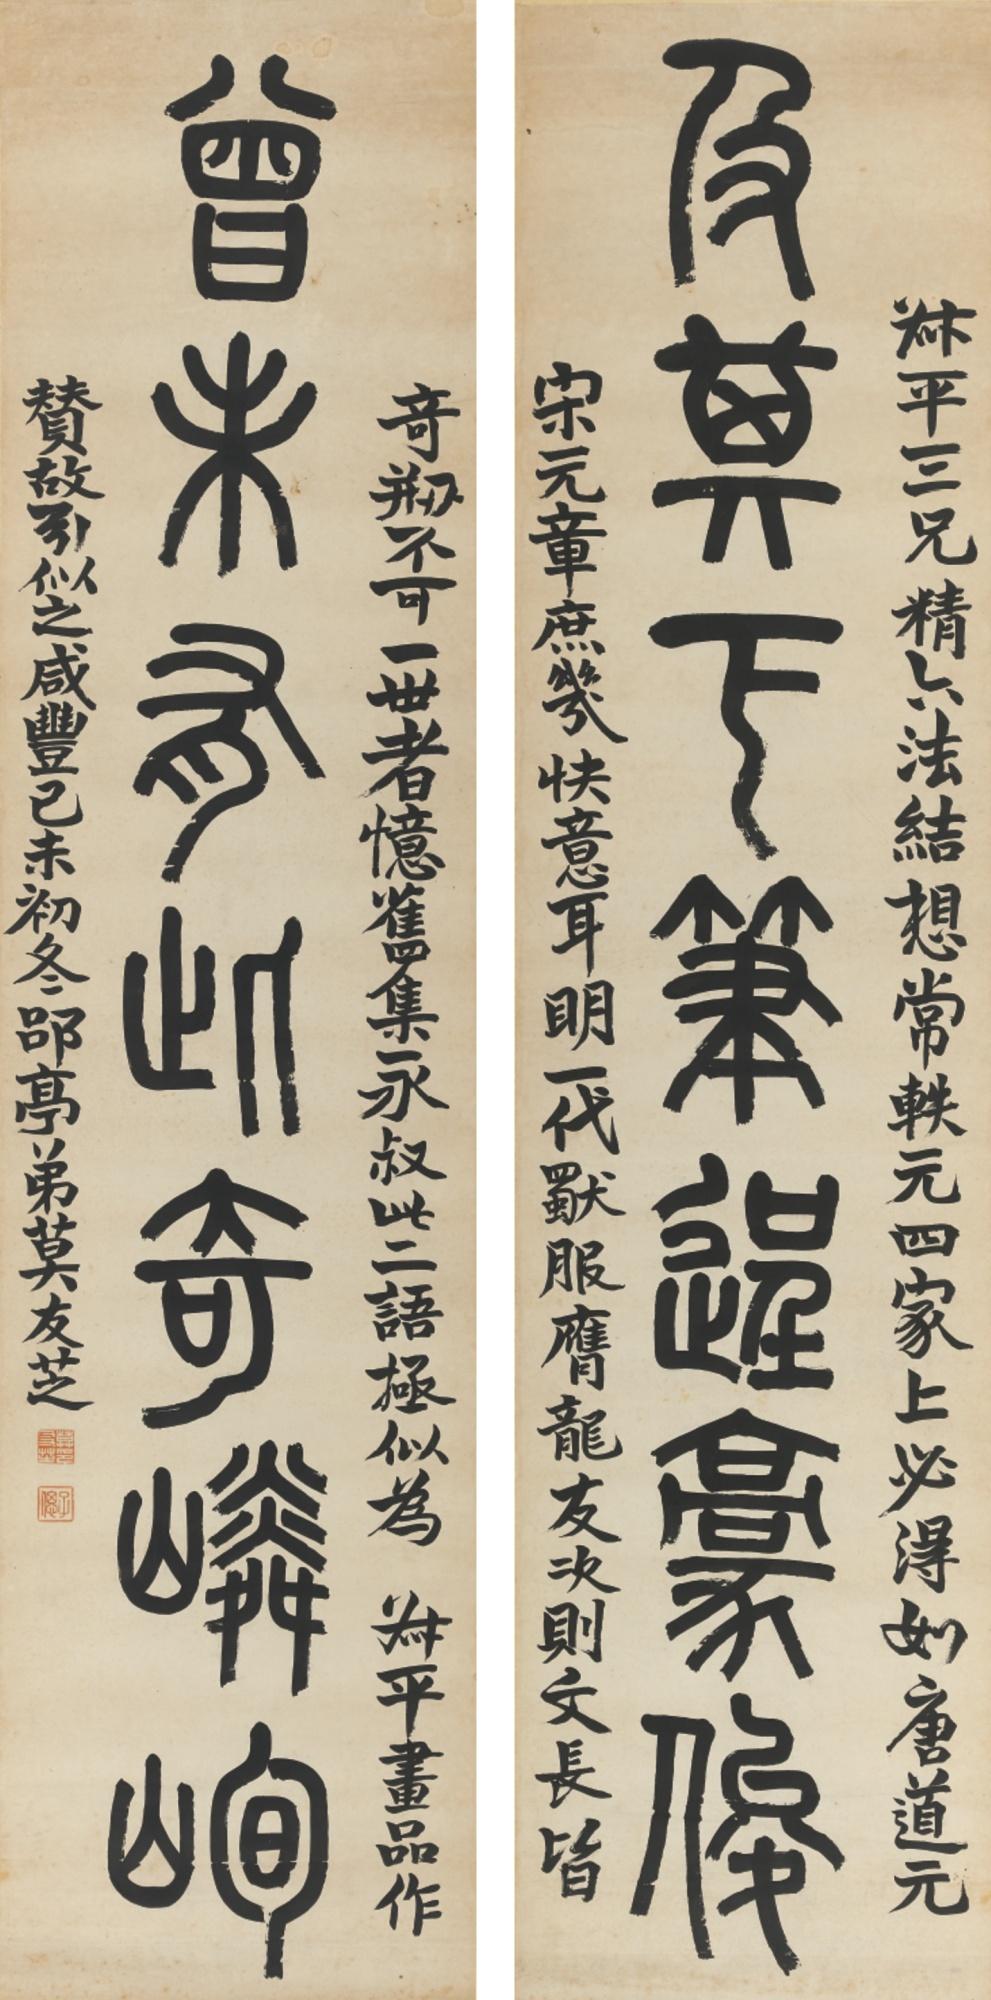 叔平三兄精六法結想常軼元四家上必得如唐道元
及其下筆逞豪俊
宋元章庶幾快意耳明一代獨服膺龍友次則文長皆
奇剏不可一世者憶舊集永叔此二語極似為 叔平畫品作
曾未有此奇嶙峋
贊故引似之咸豐己未初冬郘亭弟莫友芝
子偲